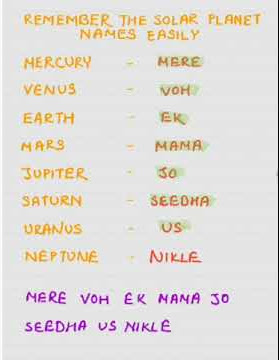 REMEMBER THE SOLAR PLANET
NAMES EASILY
MERCURY - MERE
VENUS - VOH
EARTH - EK
MARS - MAMA
JUPITER - JO
SATURN - SEEDHA
URANUS - US
NEPTUNE - NIKLE
MERE VOH EK MAMA JO
SEEDHA US NIKLE